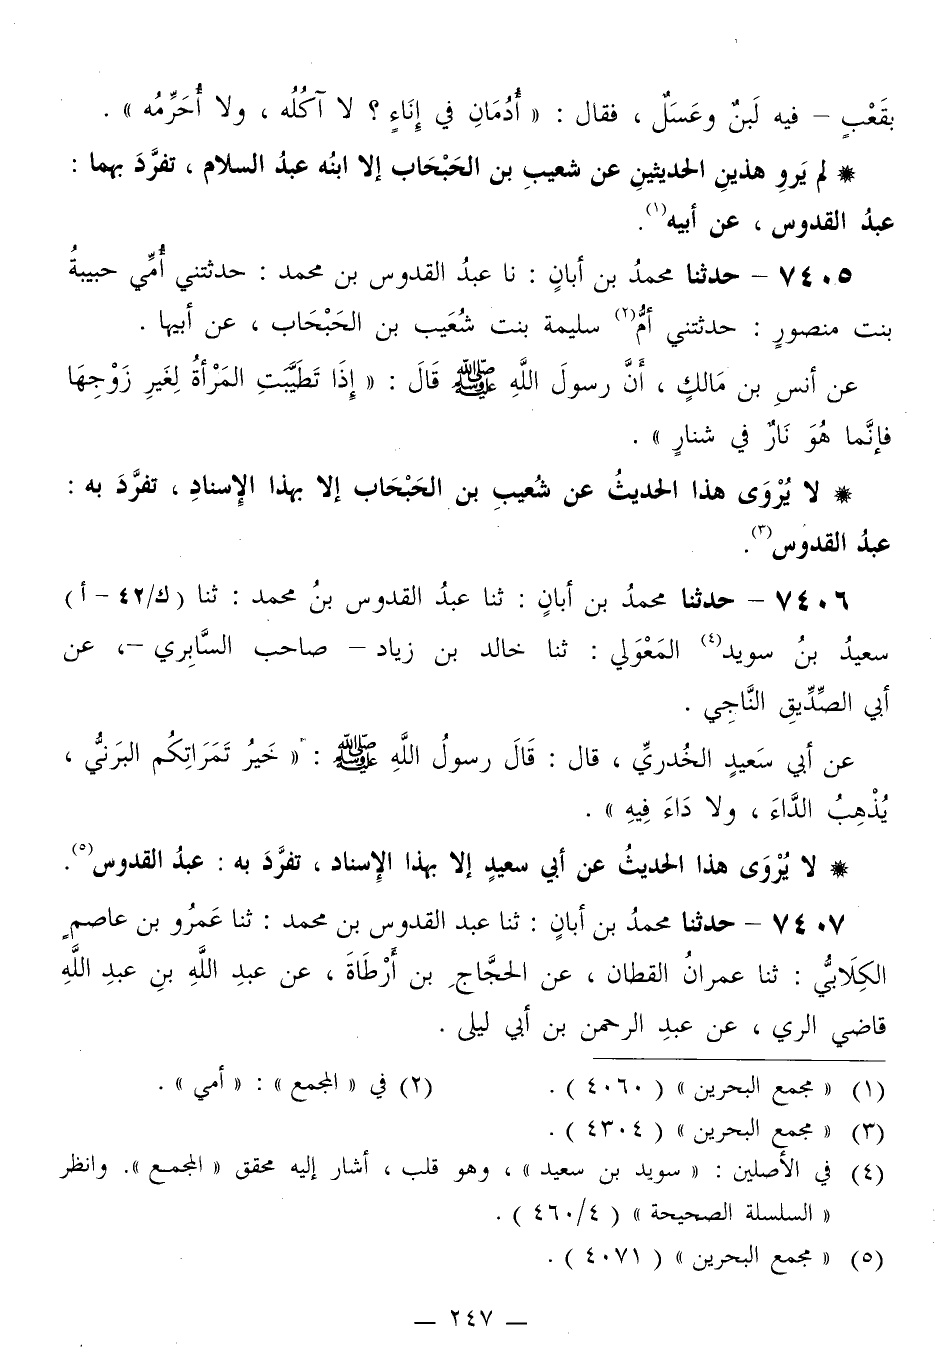 بقَعْبٍ – فيه لَبنٌ وعَسَلٌ ، فقال : « أُدُمَانِ في إِنَاءٍ ؟ لا آكُلُه ، ولا أُحَرِّمُه » .
* لم يَروِ هذينِ الحديثينِ عن شعيبِ بن الحَبْحَاب إلا ابنُه عبدُ السلام ، تفرَّدَ بهما :
عبدُ القدوس ، عن أبيه(١).
٧٤٠٥ – حدثنا محمدُ بن أبانٍ : نا عبدُ القدوس بن محمد : حدثتني أُمِّي حبيبةُ
بنت منصورٍ : حدثتني أمُّ(٢) سليمة بنت شُعَيب بن الحَبْحَاب ، عن أبيها .
عن أنسِ بن مَالكٍ ، أَنَّ رسولَ اللَّهِ ﷺ قَالَ : « إِذَا تَطَيَّبَتِ المَرْأةُ لِغَيرِ زَوْجِهَا
فإنَّما هُوَ نَارٌ في شنارٍ » .
* لا يُرْوَى هذا الحديثُ عن شُعيبِ بن الحَبْحَاب إلا بهذا الإِسنادِ ، تفرَّدَ به :
عبدُ القدوس(٣).
٧٤٠٦ – حدثنا محمدُ بن أبانٍ : ثنا عبدُ القدوس بنُ محمد : ثنا (ك/٤٢ – أ)
سعيدُ بنُ سويد(٤) المَعْوَلي : ثنا خالد بن زياد – صاحب السَّابِري –، عن
أبي الصِّدِّيقِ النَّاجِي .
عن أبي سَعيدٍ الخُدريِّ ، قال : قَالَ رسولُ اللَّهِ ﷺ : « خَيرُ تَمَرَاتِكُم البَرنيُّ ،
يُذْهِبُ الدَّاءَ ، ولا دَاءَ فِيهِ » .
* لا يُرْوَى هذا الحديثُ عن أبي سعيدٍ إلا بهذا الإِسناد ، تفرَّدَ به : عبدُ القدوس(٥).
٧٤٠٧ – حدثنا محمدُ بن أبانٍ : ثنا عبد القدوس بن محمد : ثنا عَمرُو بن عاصمٍ
الكِلَابيُّ : ثنا عمرانُ القطان ، عن الحجَّاجِ بن أَرْطَاةَ ، عن عبدِ اللَّهِ بنِ عبدِ اللَّهِ
قاضي الري ، عن عبدِ الرحمن بن أبي ليلى .
(١) « مجمع البحرين » ( ٤٠٦٠ ) . (٢) في « المجمع » : « أمي » .
(٣) « مجمع البحرين » ( ٤٣٠٤ ) .
(٤) في الأصلين : « سويد بن سعيد » ، وهو قلب ، أشار إليه محقق « المجمع ». وانظر
« السلسلة الصحيحة » ( ٤/٤٦٠ ) .
(٥) « مجمع البحرين » ( ٤٠٧١ ) .
— ٢٤٧ —